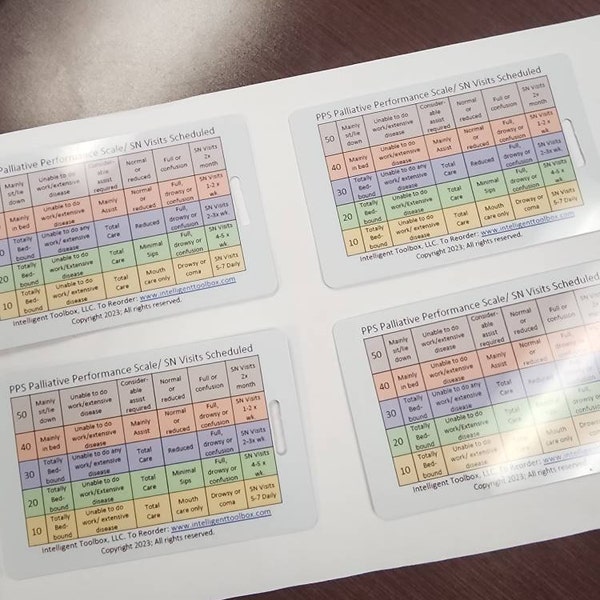 PPS Palliative Performance Scale/ SN Visits Scheduled
50 Mainly sit/lie down Unable to do work/extensive disease Consider-able assist required Normal or reduced Full or confusion SN Visits 2x month
40 Mainly in bed Unable to do work/extensive disease Mainly Assist Normal or reduced Full, drowsy or confusion SN Visits 1-2 x wk
30 Totally Bed-bound Unable to do any work/ extensive disease Total Care Reduced Full, drowsy or confusion SN Visits 2-3x wk
20 Totally Bed-bound Unable to do work/Extensive disease Total Care Minimal Sips Full, drowsy or confusion SN Visits 4-5 x wk
10 Totally Bed-bound Unable to do work/ extensive disease Total Care Mouth care only Drowsy or coma SN Visits 5-7 Daily
Intelligent Toolbox, LLC. To Reorder: www.intelligenttoolbox.com
Copyright 2023; All rights reserved.
PPS Palliative Performance Scale/ SN Visits Scheduled
50 Mainly sit/lie down Unable to do work/extensive disease Consider-able assist required Normal or reduced Full or confusion SN Visits 2x month
40 Mainly in bed Unable to do work/extensive disease Mainly Assist Normal or reduced Full, drowsy or confusion SN Visits 1-2 x wk
30 Totally Bed-bound Unable to do any work/ extensive disease Total Care Reduced Full, drowsy or confusion SN Visits 2-3x wk
20 Totally Bed-bound Unable to do work/Extensive disease Total Care Minimal Sips Full, drowsy or confusion SN Visits 4-5 x wk
10 Totally Bed-bound Unable to do work/ extensive disease Total Care Mouth care only Drowsy or coma SN Visits 5-7 Daily
Intelligent Toolbox, LLC. To Reorder: www.intelligenttoolbox.com
Copyright 2023; All rights reserved.
PPS Palliative Performance Scale/ SN Visits Scheduled
50 Mainly sit/lie down Unable to do work/extensive disease Consider-able assist required Normal or reduced Full or confusion SN Visits 2x month
40 Mainly in bed Unable to do work/extensive disease Mainly Assist Normal or reduced Full, drowsy or confusion SN Visits 1-2 x wk
30 Totally Bed-bound Unable to do any work/ extensive disease Total Care Reduced Full, drowsy or confusion SN Visits 2-3x wk
20 Totally Bed-bound Unable to do work/Extensive disease Total Care Minimal Sips Full, drowsy or confusion SN Visits 4-5 x wk
10 Totally Bed-bound Unable to do work/ extensive disease Total Care Mouth care only Drowsy or coma SN Visits 5-7 Daily
Intelligent Toolbox, LLC. To Reorder: www.intelligenttoolbox.com
Copyright 2023; All rights reserved.
PPS Palliative Performance Scale/ SN Visits Scheduled
50 Mainly sit/lie down Unable to do work/extensive disease Consider-able assist required Normal or reduced Full or confusion SN Visits
40 Mainly in bed Unable to do work/extensive disease Mainly Assist Normal or reduced Full, drowsy or
30 Totally Bed-bound Unable to do any work/ extensive disease Total Care Reduced
20 Totally Bed-bound Unable to do work/Extensive disease Total Care Minimal Sips
10 Totally Bed-bound Unable to do work/ extensive disease Total Care Mouth care only Drowsy or coma SN Visits
Intelligent Toolbox, LLC. To Reorder: www.intelligenttoolbox.com
Copyright 2023; All rights reserved.